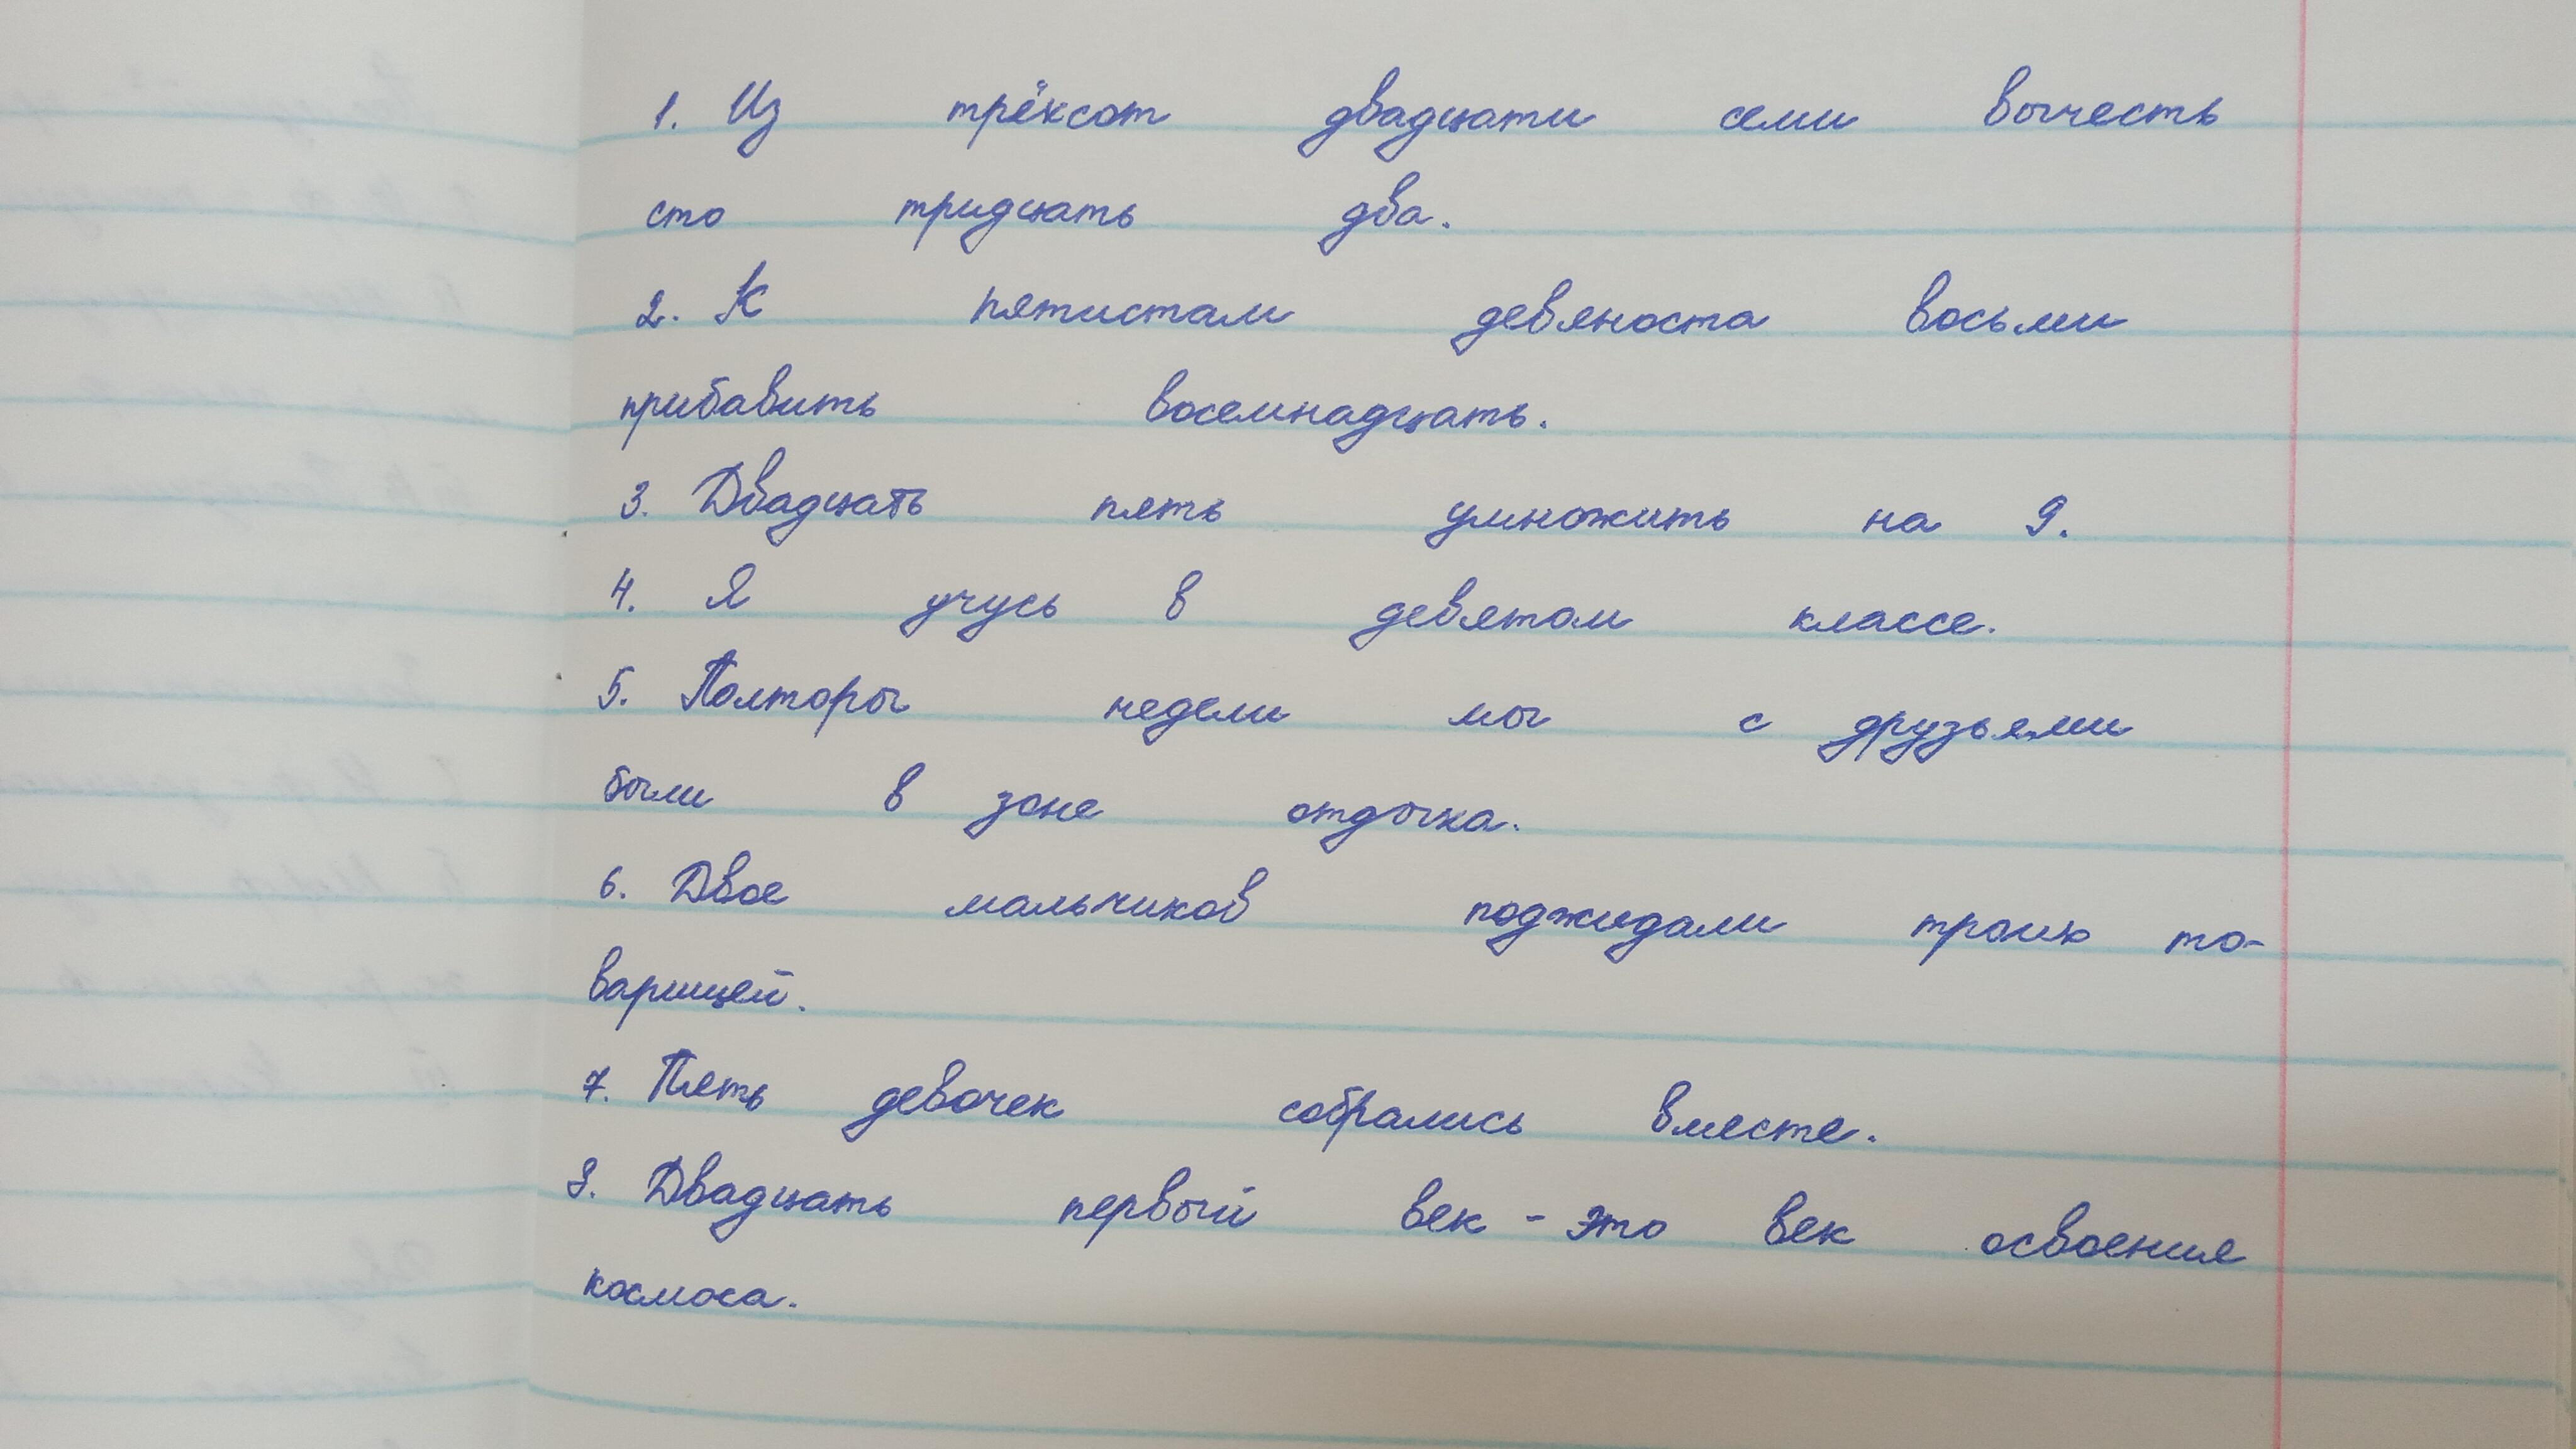 1. Из трёхсот двадцати семи вычесть
сто тридцать два.
2. К пятистам девяноста восьми
прибавить восемнадцать.
3. Двадцать пять умножить на 9.
4. Я учусь в девятом классе.
5. Полторы недели мы с друзьями
были в зоне отдыха.
6. Двое мальчиков поджидали троих то-
варищей.
7. Пять девочек собрались вместе.
8. Двадцать первый век - это век освоения
космоса.